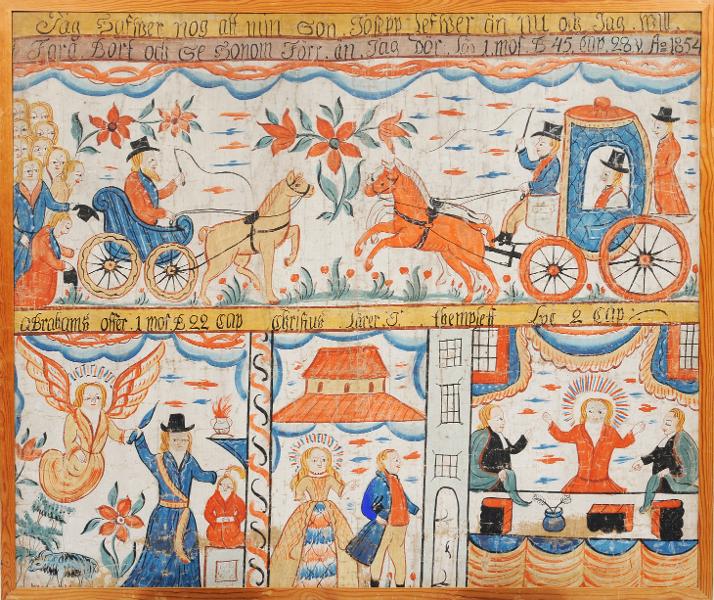 Jag Hafwer nog att min Son Josepp Lefwer än Nu och Jag Will
Fara Bort och Se Honom Förr än Jag Dör 1 mos B 45 Cap 28 v Ao 1854
Abrahams offer 1 mos B 22 Cap Christus Lärer I Tempelet Luc 2 Cap